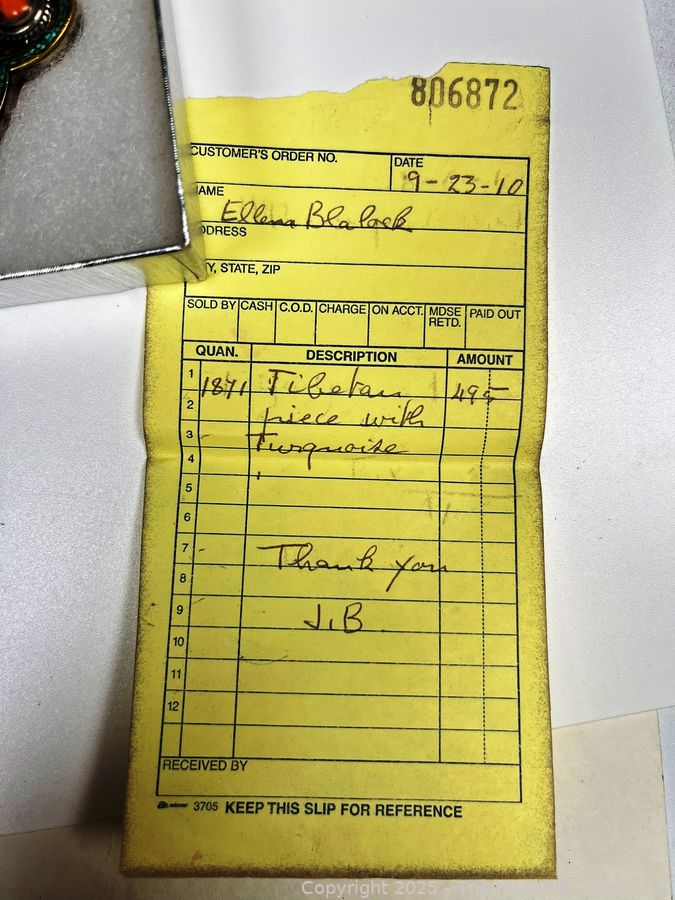 806872
CUSTOMER'S ORDER NO. DATE
9-23-10
NAME
Ellen Blalock
DDRESS
Y, STATE, ZIP
SOLD BY CASH C.O.D. CHARGE ON ACCT. MDSE RETD. PAID OUT
QUAN. DESCRIPTION AMOUNT
1 1871 Tibetan 495
2 piece with
3 Turquoise
4
5
6
7 Thank you
8
9 J.B
10
11
12
RECEIVED BY
adams 3705 KEEP THIS SLIP FOR REFERENCE
Copyright 2025